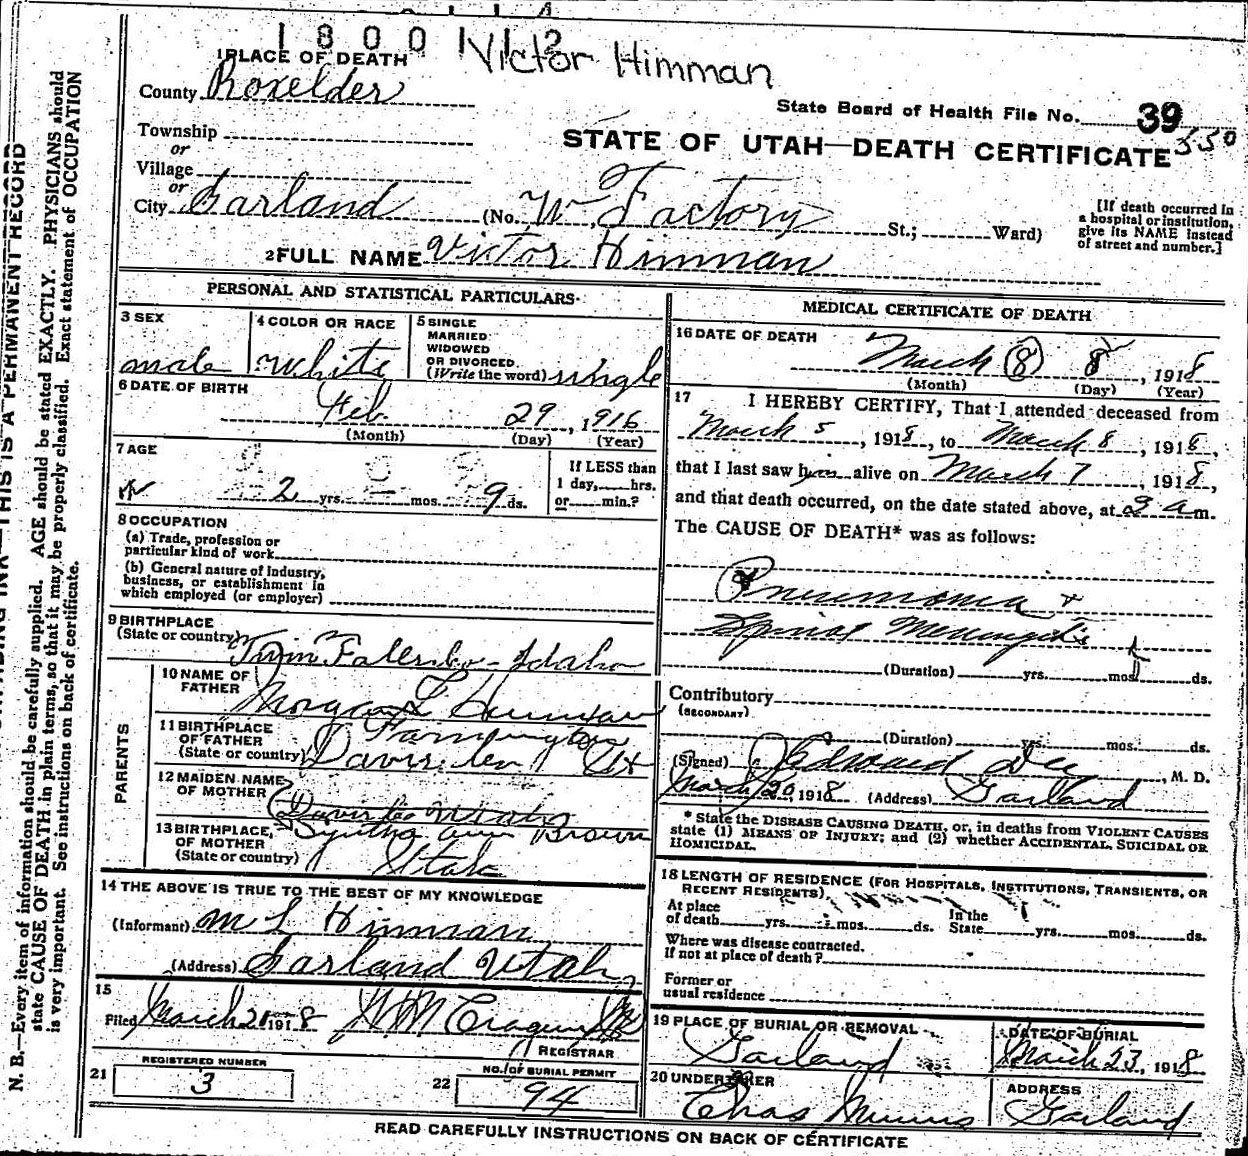 1 8 0 0 1 1 2
Victor Himman
1 PLACE OF DEATH
County Boxelder
State Board of Health File No. 39
350
Township
or
Village
or
City Garland (No. W Factory St.; Ward)
STATE OF UTAH—DEATH CERTIFICATE
[If death occurred in
a hospital or institution,
give its NAME instead
of street and number.]
2 FULL NAME Victor Himman
PERSONAL AND STATISTICAL PARTICULARS
3 SEX
male
4 COLOR OR RACE
White
5 SINGLE
MARRIED
WIDOWED
OR DIVORCED
(Write the word) single
6 DATE OF BIRTH
Feb. 29, 1916
(Month) (Day) (Year)
7 AGE
2 yrs. — mos. 9 ds.
If LESS than
1 day, hrs.
or min.?
8 OCCUPATION
(a) Trade, profession or
particular kind of work
(b) General nature of Industry,
business, or establishment in
which employed (or employer)
9 BIRTHPLACE
(State or country) Twin Falls Idaho
PARENTS
10 NAME OF
FATHER Morgan L Himman
11 BIRTHPLACE
OF FATHER Farmington
(State or country) Davis Ut
12 MAIDEN NAME
OF MOTHER
Davis Co Utah
13 BIRTHPLACE
OF MOTHER Syntha ann Brown
(State or country) Utah
14 THE ABOVE IS TRUE TO THE BEST OF MY KNOWLEDGE
(Informant) M L Himman
(Address) Garland Utah
15
Filed March 20 1918
REGISTRAR
REGISTERED NUMBER
21 3
NO. OF BURIAL PERMIT
22 94
MEDICAL CERTIFICATE OF DEATH
16 DATE OF DEATH
March 8 8, 1918
(Month) (Day) (Year)
17 I HEREBY CERTIFY, That I attended deceased from
March 5, 1918, to March 8, 1918,
that I last saw him alive on March 7, 1918,
and that death occurred, on the date stated above, at 3 a m.
The CAUSE OF DEATH* was as follows:
Pneumonia +
Spinal Meningitis
(Duration) yrs. mos. ds.
Contributory
(SECONDARY)
(Duration) yrs. mos. ds.
(Signed) Edward Dee, M. D.
March 20, 1918 (Address) Garland
* State the DISEASE CAUSING DEATH, or, in deaths from VIOLENT CAUSES
state (1) MEANS OF INJURY; and (2) whether ACCIDENTAL, SUICIDAL OR
HOMICIDAL.
18 LENGTH OF RESIDENCE (FOR HOSPITALS, INSTITUTIONS, TRANSIENTS, OR
RECENT RESIDENTS)
At place
of death yrs. mos. ds.
In the
State yrs. mos. ds.
Where was disease contracted,
If not at place of death?
Former or
usual residence
19 PLACE OF BURIAL OR REMOVAL
Garland
DATE OF BURIAL
March 23, 1918
20 UNDERTAKER
Chas
ADDRESS
Garland
READ CAREFULLY INSTRUCTIONS ON BACK OF CERTIFICATE
THIS IS A PERMANENT RECORD
N. B.—Every item of information should be carefully supplied. AGE should be stated EXACTLY. PHYSICIANS should
state CAUSE OF DEATH in plain terms, so that it may be properly classified. Exact statement of OCCUPATION
is very important. See instructions on back of certificate.